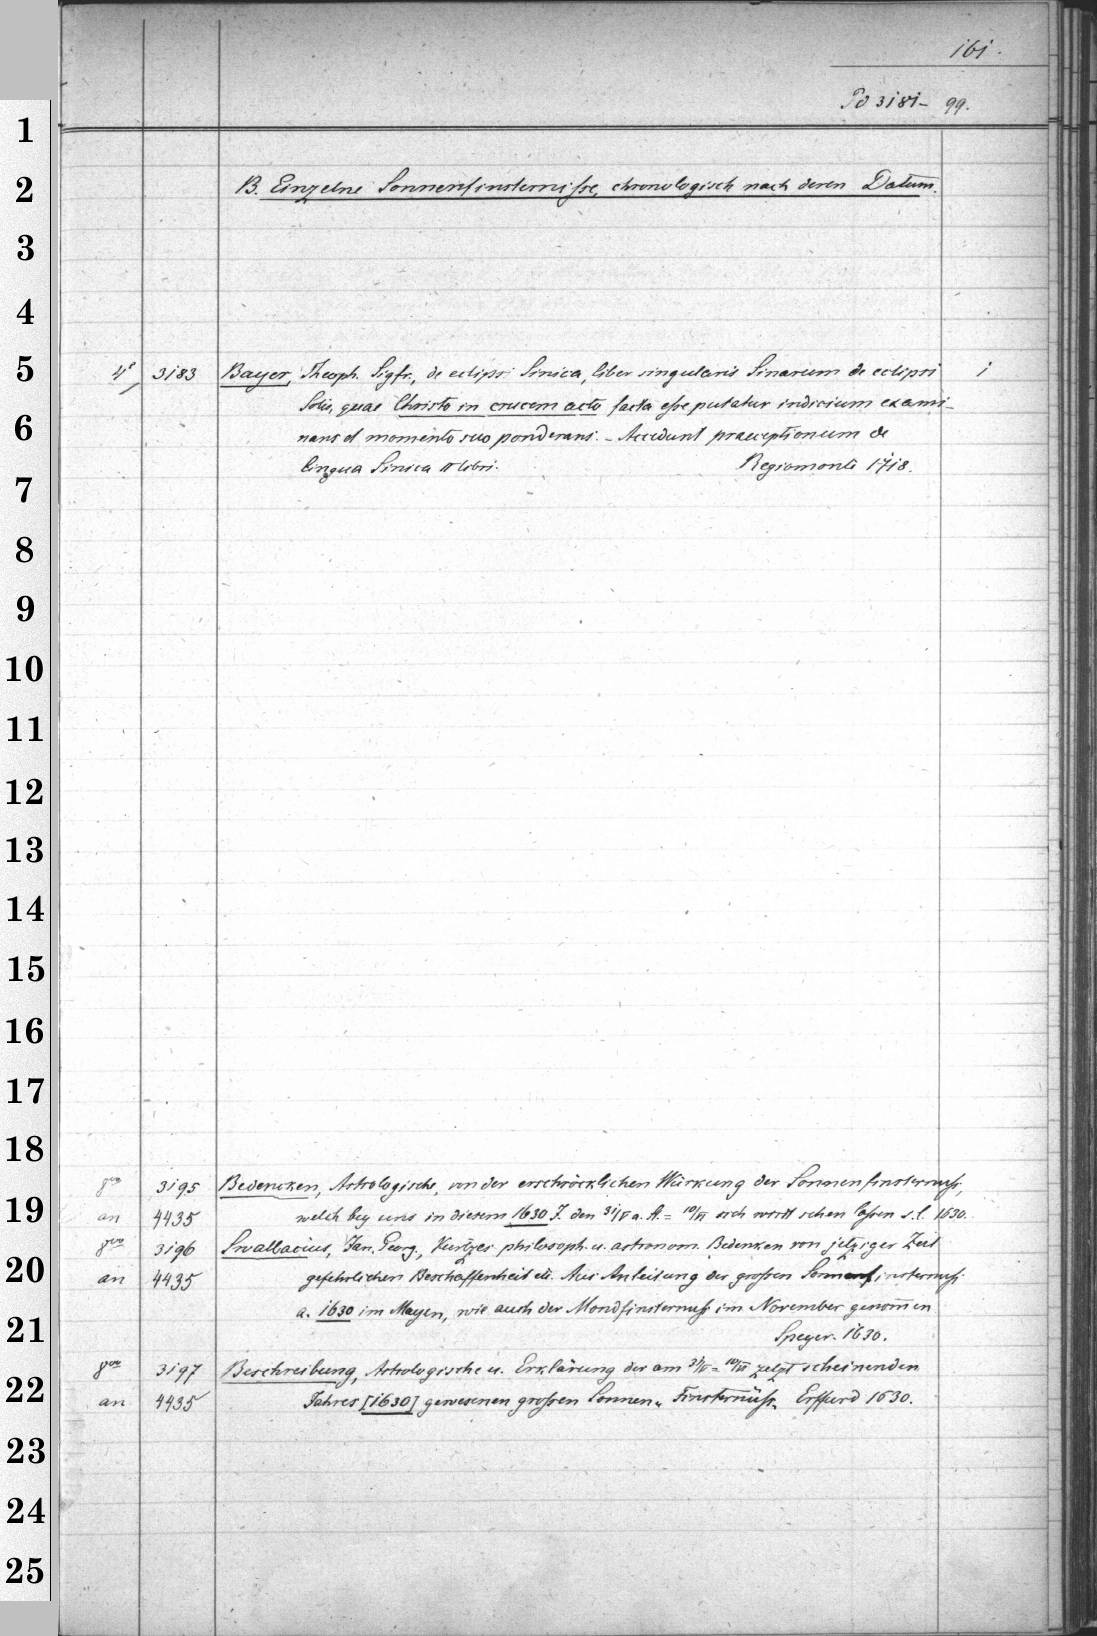 161.
Po 3181-99.
B. Einzelne Sonnenfinsternisse, chronologisch nach deren Datum.
4° 3183 Bayer, Theoph. Sigfr., de eclipsi Sinica, liber singularis Sinarum de eclipsi 1
Solis, quae Christo in crucem acto facta esse putatur indicium exami-
nans et momento suo ponderans. - Accedunt praeceptionum de
lingua Sinica II libri. Regiomonti 1718.
8vo 3195 Bedencken, Astrologische, von der erschröcklichen Würkung der Sonnenfinsternuß,
an 4435 welch bey uns in diesem 1630 J. den 31/V a. St. = 10/VI sich wirdt sehen lassen s. l. 1630.
8vo 3196 Swallacius, Jan. Georg., Kurtzes philosoph. u. astronom. Bedenken von jetziger Zeit
an 4435 gefehrlichen Beschaffenheit etc. Aus Anleitung der grossen Sonnenfinsternuß
a. 1630 im Mayen, wie auch der Mondfinsternuß im November genom̄en
Speyer. 1630.
8vo 3197 Beschreibung, Astrologische u. Erklärung der am 31/V = 10/VI jetzt scheinenden
an 4435 Jahres [1630] gewesenen grossen Sonnen-Finsternüß. Erffurd 1630.
1
2
3
4
5
6
7
8
9
10
11
12
13
14
15
16
17
18
19
20
21
22
23
24
25